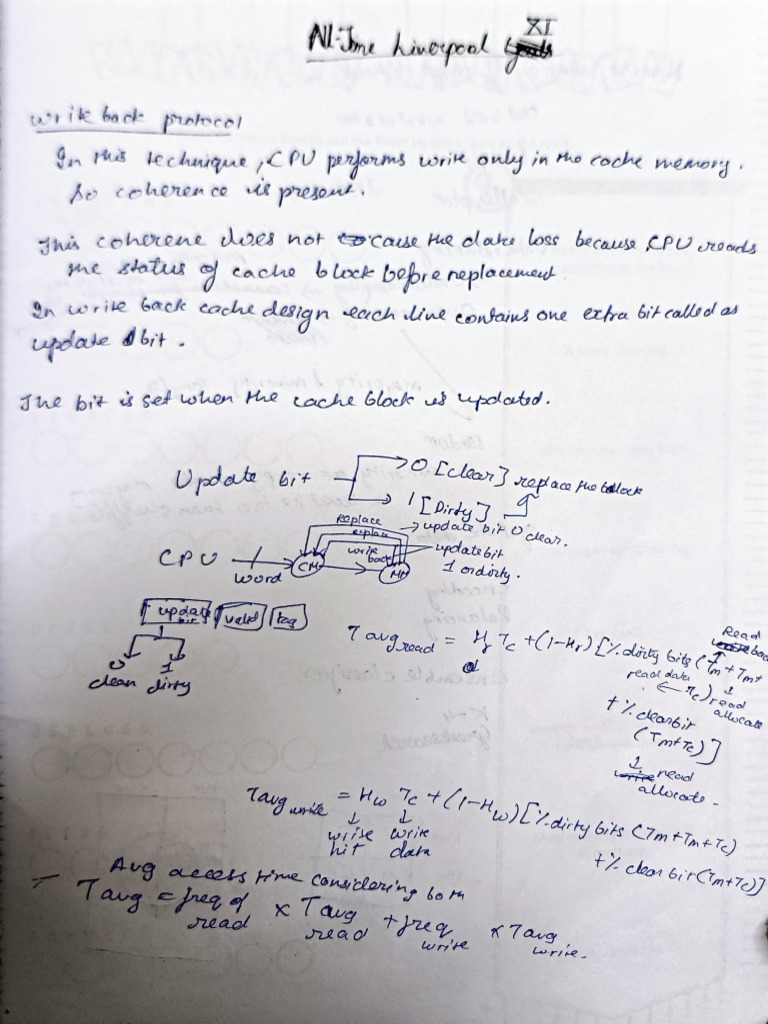 All-Time Liverpool XI
Write back protocol
In this technique, CPU performs write only in the cache memory.
So coherence is present.
This coherene does not cause the data loss because CPU reads
the status of cache block before replacement
In write back cache design each line contains one extra bit called as
update bit.
The bit is set when the cache block is updated.
Update bit
0 [clear] replace the block
1 [Dirty]
replace → update bit 0 clear.
replace
CPU word CM write back MM update bit
1 or dirty.
update bit valid tag
0 1
clean dirty
Tavg read = Hr Tc + (1-Hr) [% dirty bits (Tm + Tm +
Read
read data ← Tc) read allocate
+ % clear bit
(Tm + Tc)]
read
allocate.
Tavg write = Hw Tc + (1-Hw) [% dirty bits (Tm + Tm + Tc)
write hit write data
+ % clear bit (Tm + Tc)]
Avg access time considering both
Tavg = freq of read x Tavg read + freq write x Tavg write.